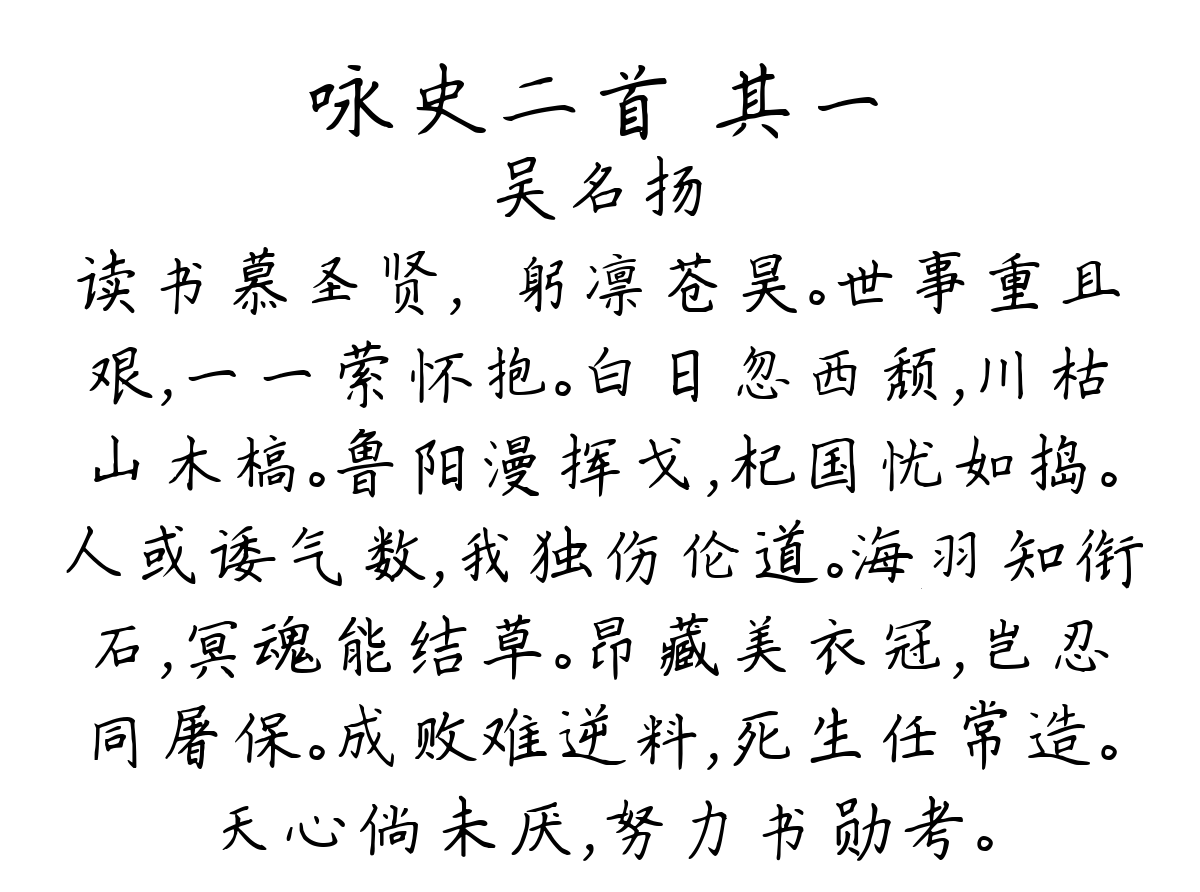 咏史二首 其一
吴名扬
读书慕圣贤，躬凛苍昊。世事重且
艰，一一萦怀抱。白日忽西颓，川枯
山木槁。鲁阳漫挥戈，杞国忧如捣。
人或诿气数，我独伤伦道。海羽知衔
石，冥魂能结草。昂藏美衣冠，岂忍
同屠保。成败难逆料，死生任常造。
天心倘未厌，努力书勋考。